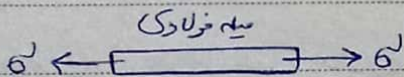 میله فولادی
σ σ